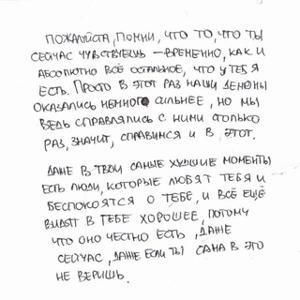 ПОЖАЛУЙСТА, ПОМНИ, ЧТО ТО, ЧТО ТЫ
СЕЙЧАС ЧУВСТВУЕШЬ – ВРЕМЕННО, КАК И
АБСОЛЮТНО ВСЁ ОСТАЛЬНОЕ, ЧТО У ТЕБЯ
ЕСТЬ. ПРОСТО В ЭТОТ РАЗ НАШИ ДЕМОНЫ
ОКАЗАЛИСЬ НЕМНОГО СИЛЬНЕЕ, НО МЫ
ВЕДЬ СПРАВЛЯЛИСЬ С НИМИ СТОЛЬКО
РАЗ, ЗНАЧИТ, СПРАВИМСЯ И В ЭТОТ.
ДАЖЕ В ТВОИ САМЫЕ ХУДШИЕ МОМЕНТЫ
ЕСТЬ ЛЮДИ, КОТОРЫЕ ЛЮБЯТ ТЕБЯ И
БЕСПОКОЯТСЯ О ТЕБЕ, И ВСЁ ЕЩЁ
ВИДЯТ В ТЕБЕ ХОРОШЕЕ, ПОТОМУ
ЧТО ОНО ЧЕСТНО ЕСТЬ, ДАЖЕ
СЕЙЧАС, ДАЖЕ ЕСЛИ ТЫ САМА В ЭТО
НЕ ВЕРИШЬ.